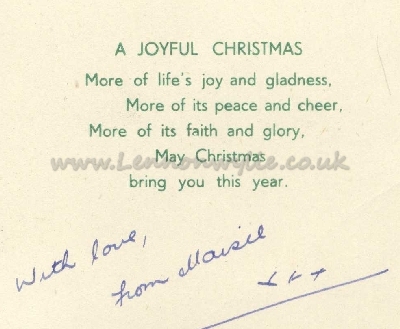 A JOYFUL CHRISTMAS
More of life's joy and gladness,
More of its peace and cheer,
More of its faith and glory,
www.Lennonwylie.co.uk
May Christmas
bring you this year.
With love,
from Maisie
x x x